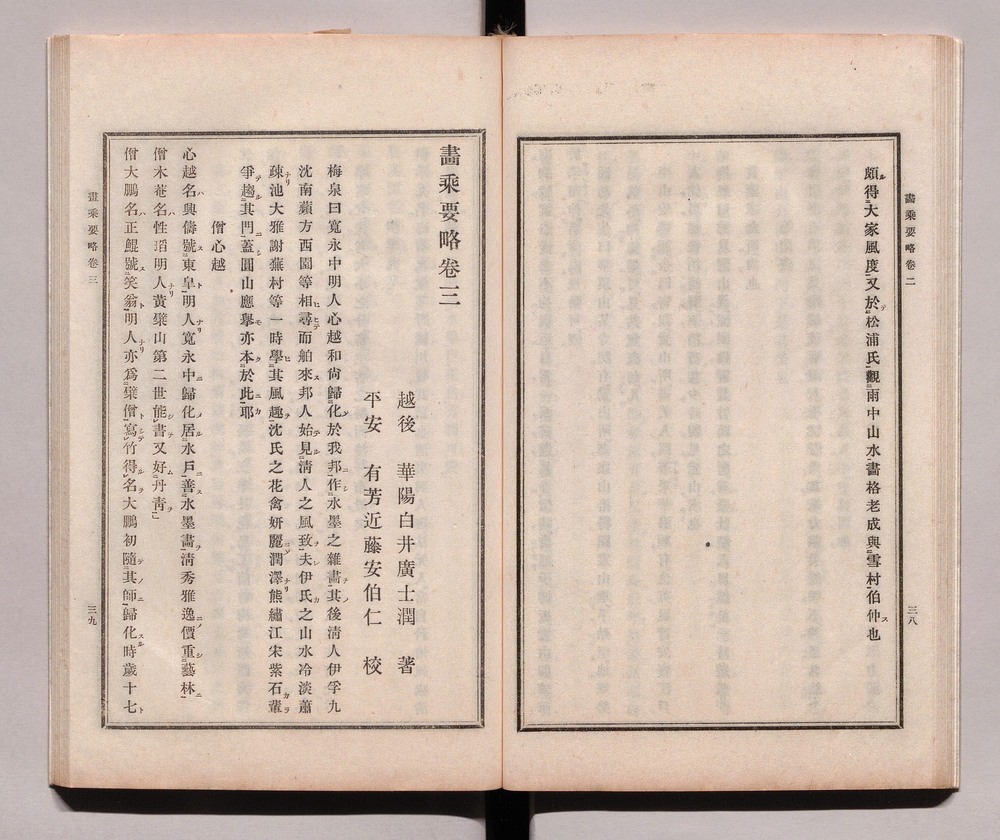 畵乘要略卷二
頗得大家風度又於松浦氏觀雨中山水畵格老成與雪村伯仲也
三八
畵乘要略卷三
越後　華陽白井廣士潤　著
平安　有芳近藤安伯仁　校
梅泉曰寬永中明人心越和尙歸化於我邦作水墨之雜畵其後淸人伊孚九
沈南蘋方西園等相尋而舶來邦人始見淸人之風致夫伊氏之山水冷淡蕭
疎池大雅謝蕪村等一時學其風趣沈氏之花禽妍麗潤澤熊繡江宋紫石輩
爭趨其門蓋圓山應擧亦本於此耶
僧心越
心越名興儔號東皐明人寬永中歸化居水戶善水墨畵淸秀雅逸價重藝林
僧木菴名性瑫明人黃檗山第二世能書又好丹靑
僧大鵬名正鯤號笑翁明人亦爲檗僧寫竹得名大鵬初隨其師歸化時歲十七
畫乘要略卷三
三九